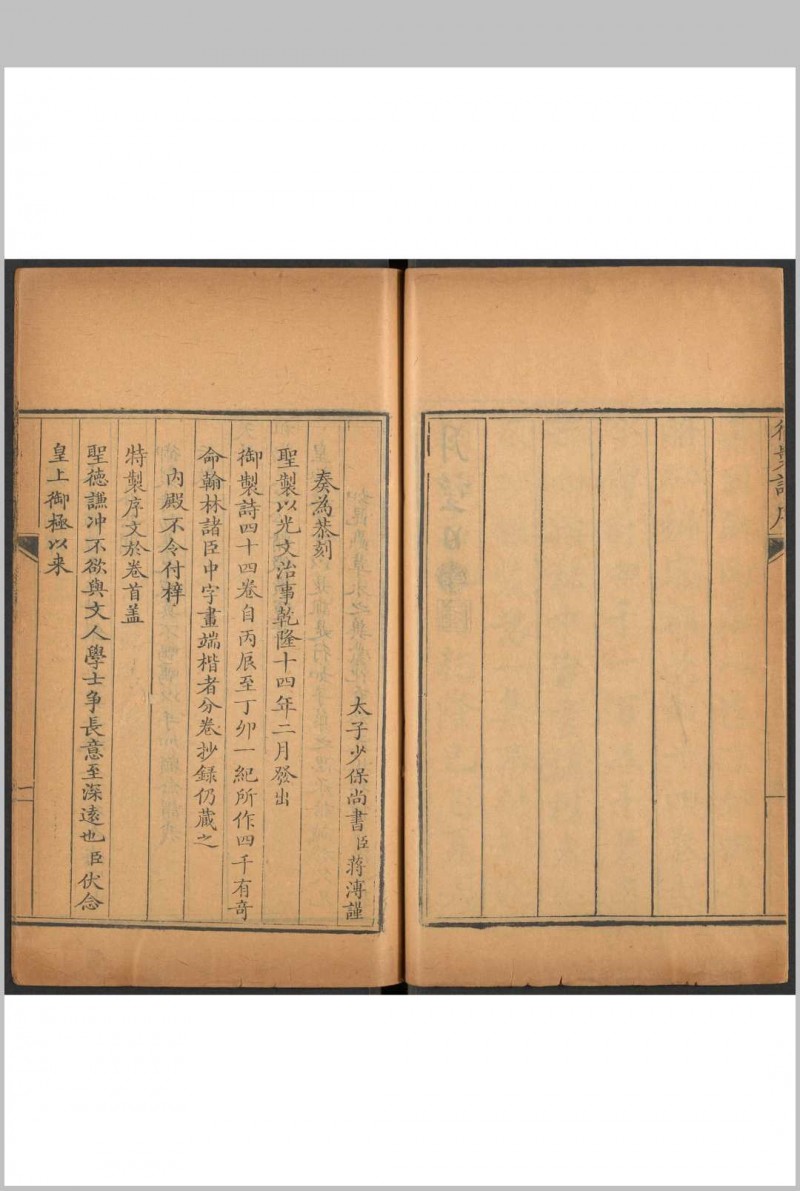 太子少保尚書臣蔣溥謹
奏為恭刻
聖製以光文治事乾隆十四年二月發出
御製詩四十四卷自丙辰至丁卯一紀所作四千有奇
命翰林諸臣中字畫端楷者分卷抄錄仍蔵之
內殿不令付梓
特製序文於卷首盖
聖德謙冲不欲與文人學士争長意至深遠也臣伏念
皇上御極以来